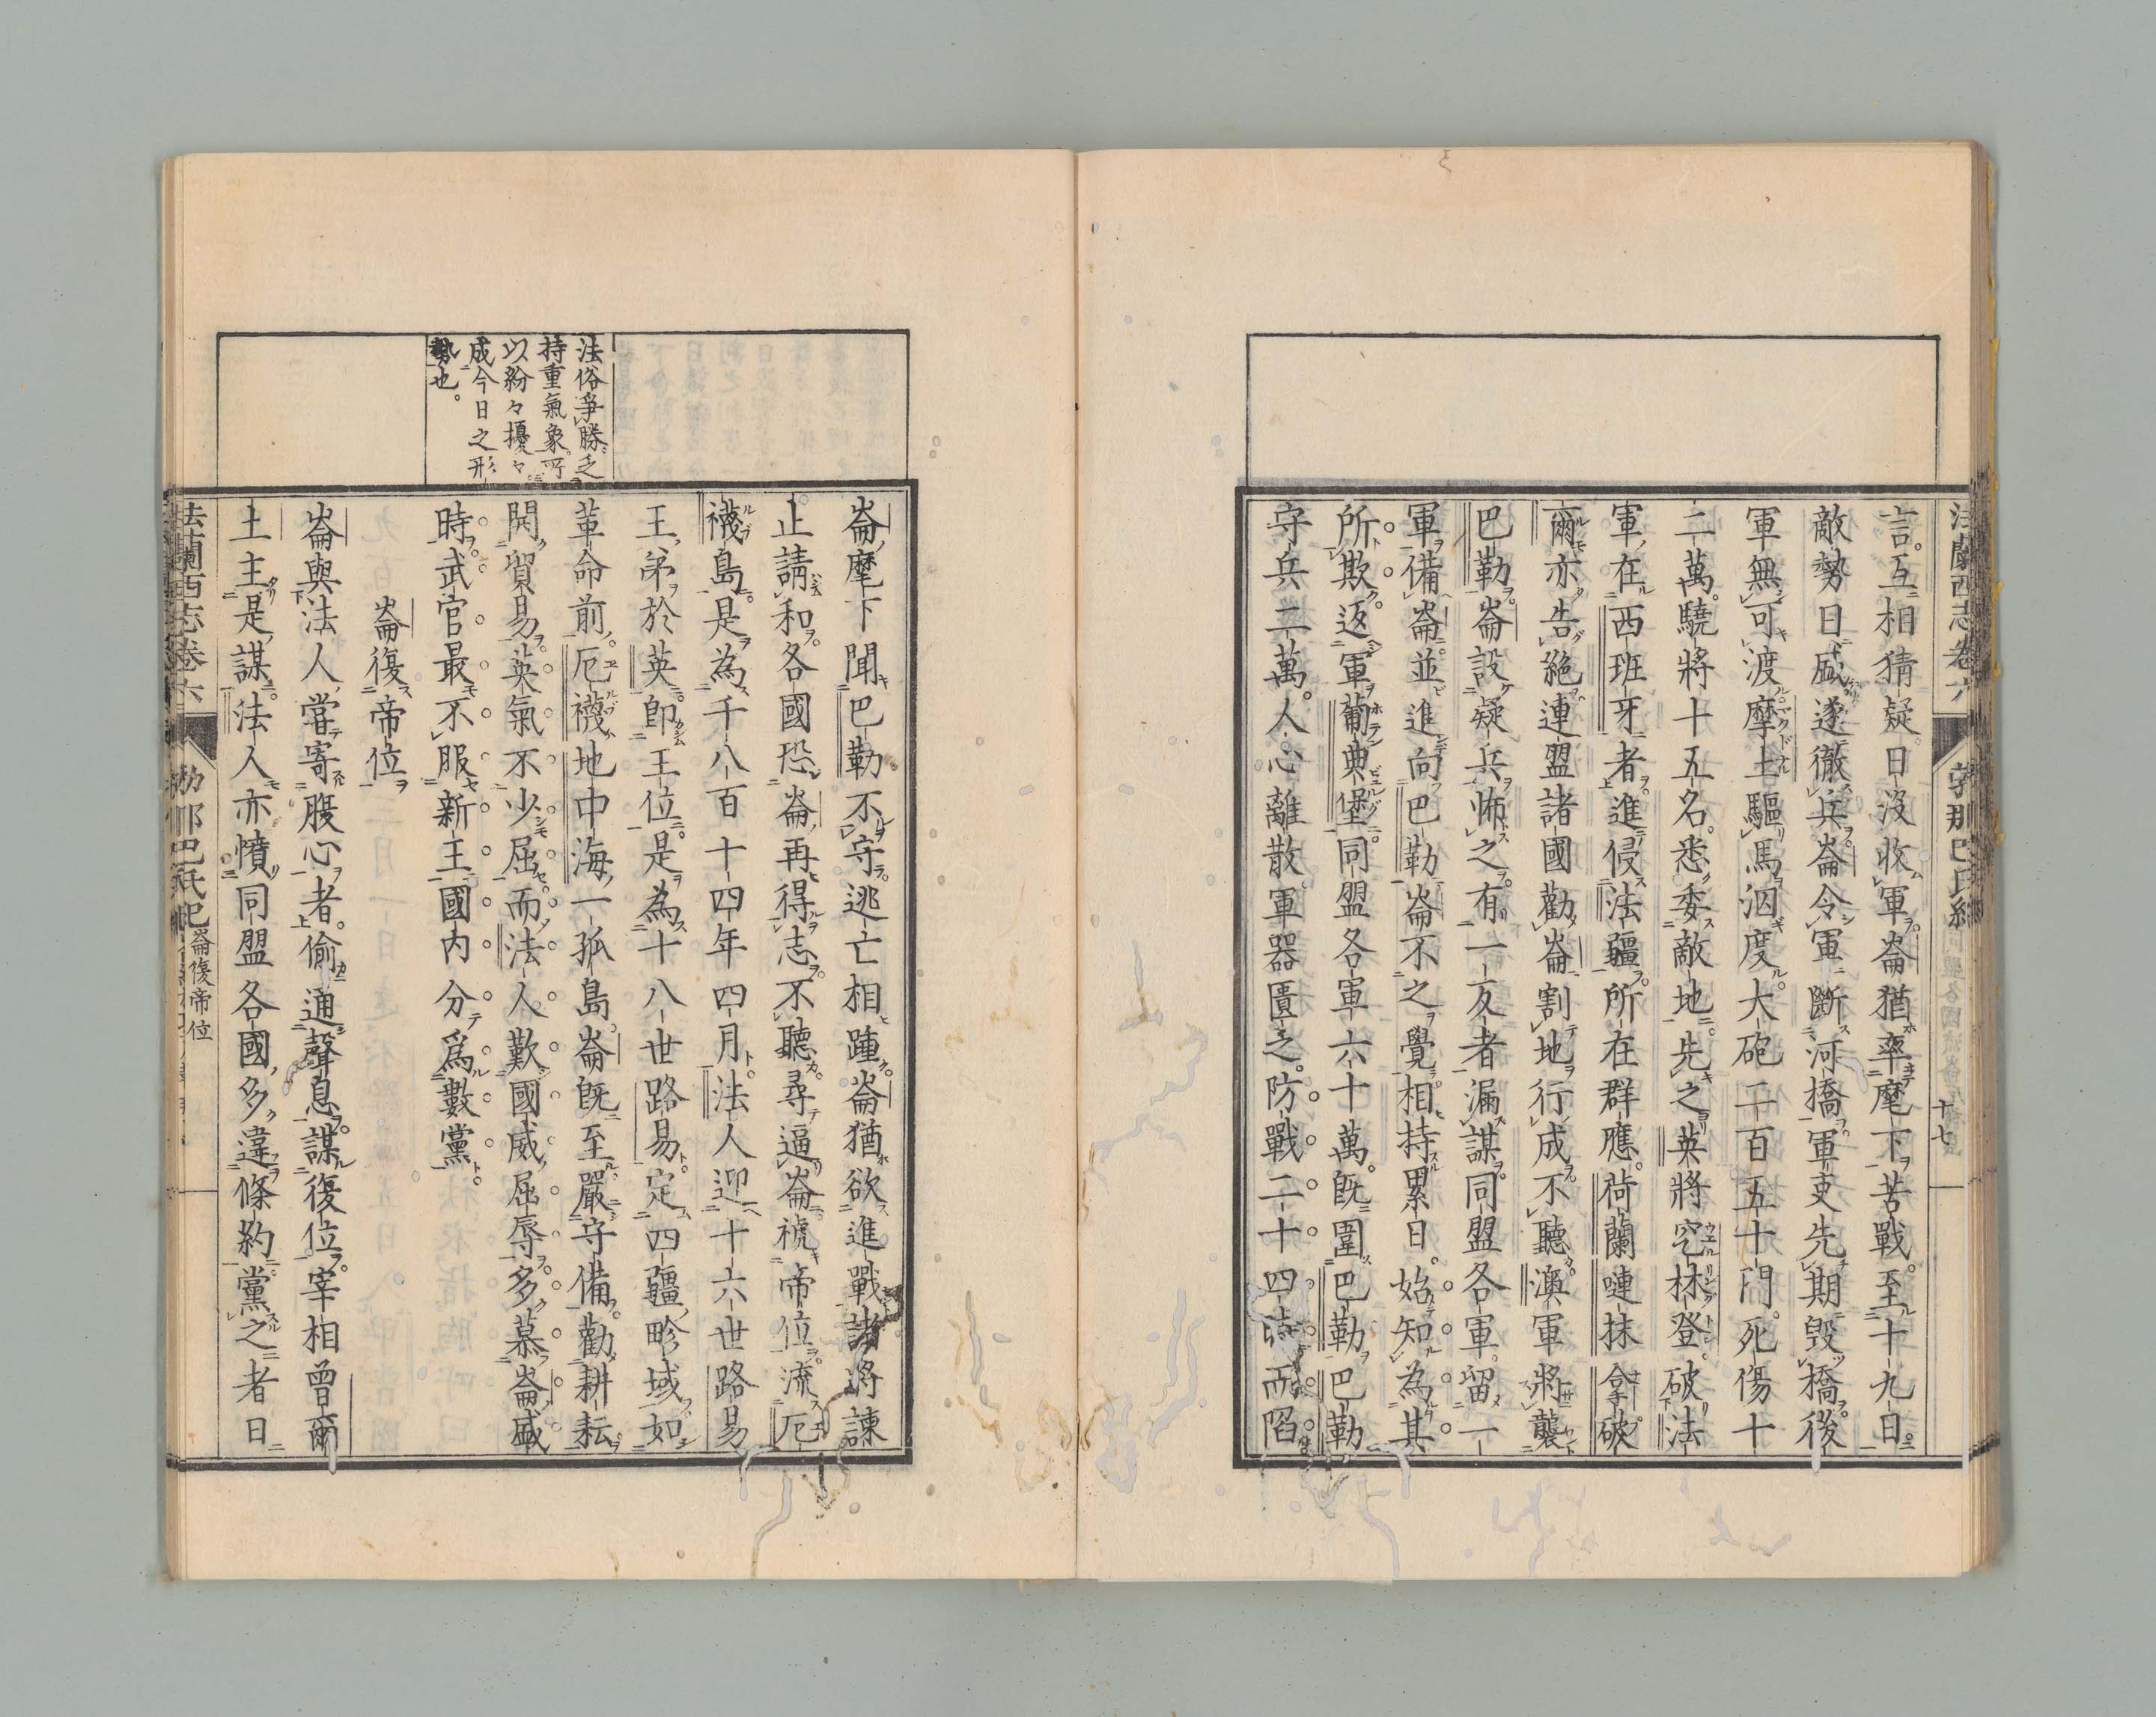 法蘭西志卷六
勃那巴氏紀
十七
言互相猜疑日沒收軍崙猶率麾下苦戰至十九日
敵勢日盛遂徹兵崙令軍斷河橋軍吏先期毀橋後
軍無可渡摩土驅馬泅度大砲二百五十門死傷十
二萬驍將十五名悉委敵地先之英將空林登破法
軍在西班牙者進侵法疆所在群應荷蘭嗹抹拿破
爾亦告絕連盟諸國勸崙割地行成不聽澳軍將襲
巴勒崙設疑兵怖之有一反者漏謀同盟各軍留一
軍備崙並進向巴勒崙不之覺相持累日始知為其
所欺返軍葡典堡同盟各軍六十萬既圍巴勒巴勒
守兵二萬人心離散軍器匱乏防戰二十四時而陷
崙麾下聞巴勒不守逃亡相踵崙猶欲進戰諸將諫
止請和各國恐崙再得志不聽尋逼崙褫帝位流厄
襪島是為千八百十四年四月法人迎十六世路易
王弟於英即王位是為十八世路易定四疆畛域如
革命前厄襪地中海一孤島崙既至嚴守備勸耕耘
開貿易英氣不少屈而法人歎國威屈辱多慕崙盛
時武官最不服新王國內分爲數黨
崙復帝位
崙與法人嘗寄腹心者偷通聲息謀復位宰相曾爾
土主是謀法人亦憤同盟各國多違條約黨之者日
法俗爭勝乏
持重氣象所
以紛々擾々
成今日之形
勢也
法蘭西志卷六
勃那巴氏紀
崙復帝位